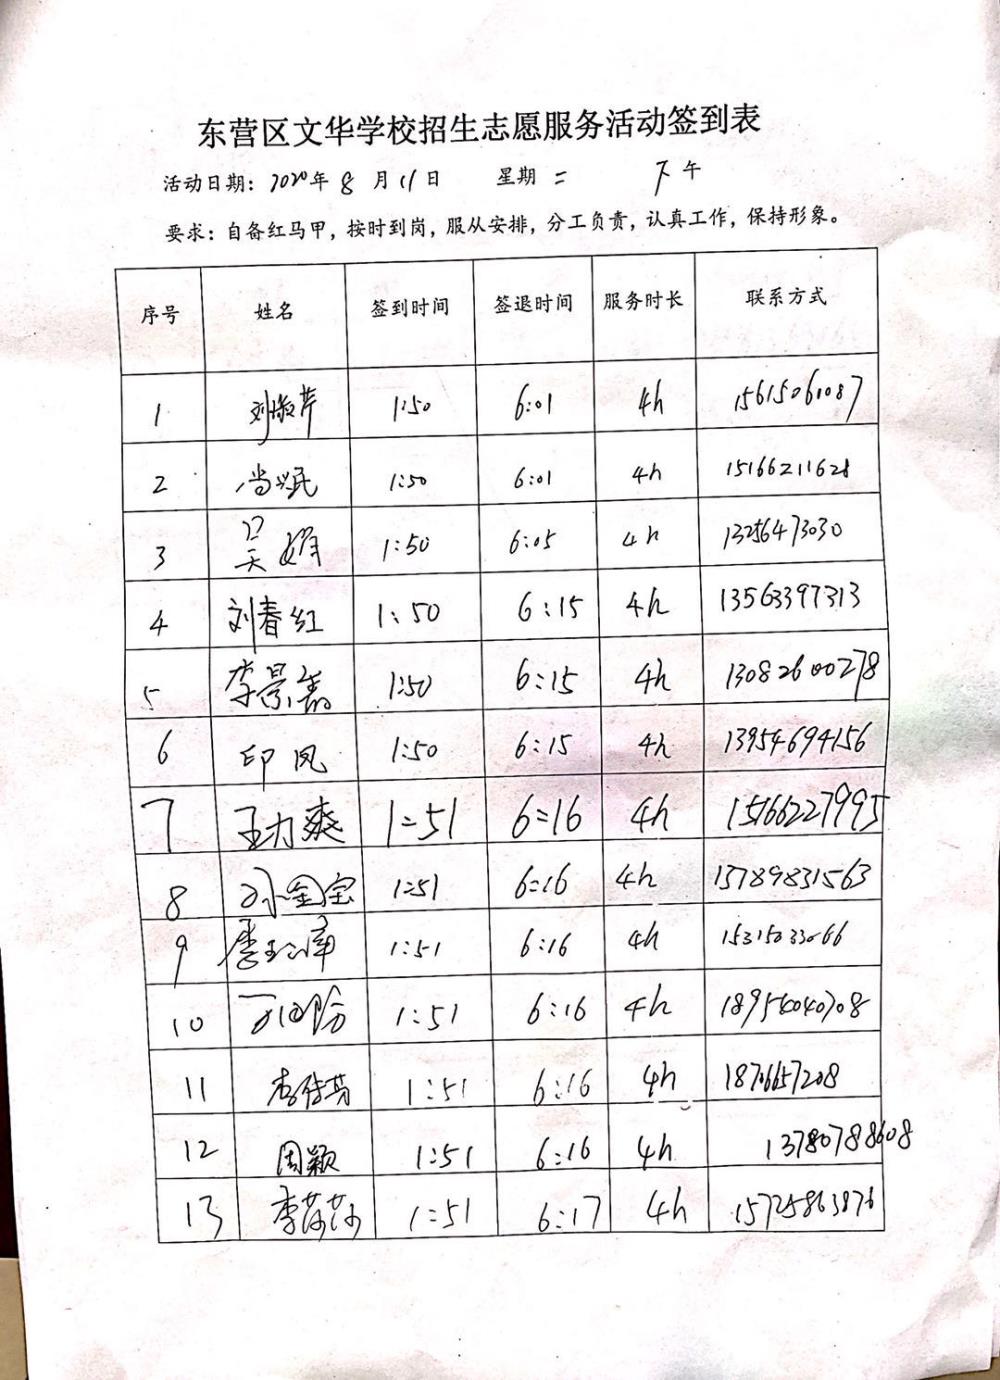 东营区文华学校招生志愿服务活动签到表
活动日期：2020年 8 月 11日 星期 二 下 午
要求：自备红马甲，按时到岗，服从安排，分工负责，认真工作，保持形象。
序号 姓名 签到时间 签退时间 服务时长 联系方式
1 刘淑芹 1:50 6:01 4h 15615061087
2 尚兴民 1:50 6:01 4h 15166211628
3 吴娟 1:50 6:05 4h 13256473030
4 刘春红 1:50 6:15 4h 13563397313
5 李景 1:50 6:15 4h 13082600278
6 印凤 1:50 6:15 4h 13954694156
7 王力爽 1:51 6:16 4h 15166227995
8 孙金宝 1:51 6:16 4h 13789831563
9 1:51 6:16 4h 15315033066
10 1:51 6:16 4h 18954040708
11 李传英 1:51 6:16 4h 18706657208
12 周颖 1:51 6:16 4h 13780788608
13 李莎莎 1:51 6:17 4h 15725863876